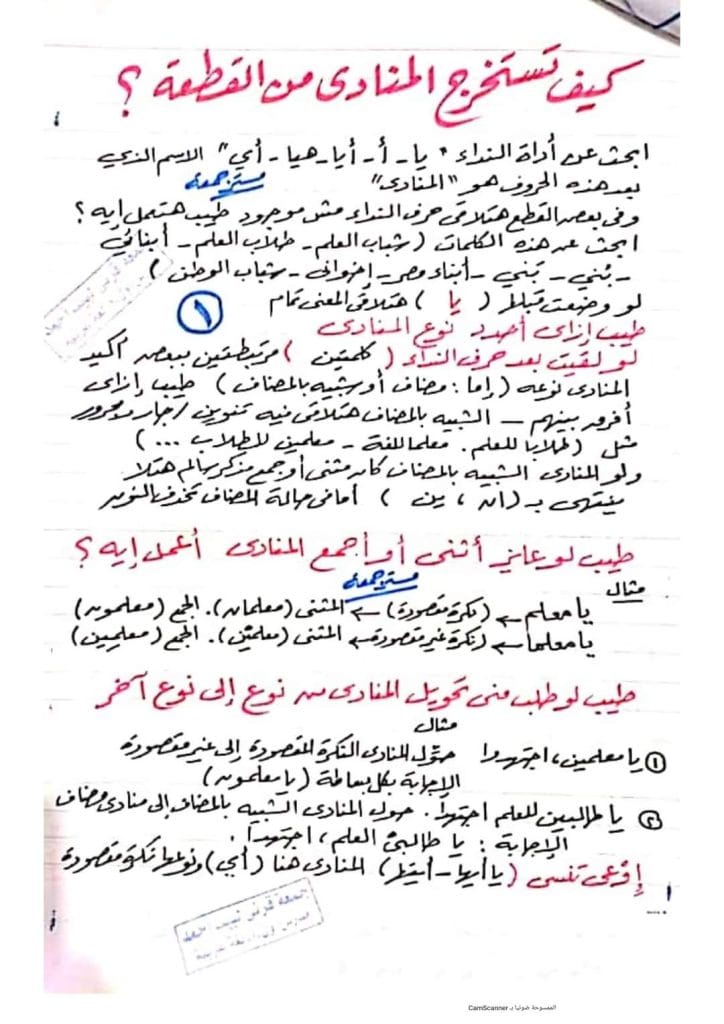 كيف تستخرج المنادى من القطعة ؟
ابحث عن أداة النداء " يا - أ - أيا - هيا - أي " الاسم الذي
بعد هذه الحروف هو "المنادى"
وفى بعض القطع هتلاقى حرف النداء مش موجود طيب هتعمل إيه ؟
ابحث عن هذه الكلمات ( شباب العلم - طلاب العلم - أبنائي
- بُني - بَني - أبناء مصر - إخوانى - شباب الوطن )
لو وضعت قبلها ( يا ) هتلاقى المعنى تمام
١
طيب إزاى أحدد نوع المنادى
لو لقيت بعد حرف النداء ( كلمتين ) مرتبطتين ببعض أكيد
المنادى نوعه ( إما : مضاف أو شبيه بالمضاف ) طيب إزاى
أفرق بينهم – الشبيه بالمضاف هتلاقى فيه تنوين / جار ومجرور
مثل ( طلابا للعلم . معلما اللغة - معلمين للطلاب ... )
ولو المنادى الشبيه بالمضاف كان مثنى أو جمع مذكر سالم هتلا
ينتهى بـ ( ان ، ين ) أما فى حالة المضاف تحذف النون
طيب لو عايز أثنى أو أجمع المنادى أعمل إيه ؟
مثال
يا معلم ← ( نكرة مقصودة ) ← المثنى ( معلمان ) . الجمع ( معلمون )
يا معلما ← ( نكرة غير مقصودة ← المثنى ( معلمَيْن ) . الجمع ( معلمِين )
طيب لو طلب منى تحويل المنادى من نوع إلى نوع آخر
مثال
١ يا معلمين ، اجتهدوا حوّل المنادى النكرة المقصودة إلى غير مقصودة
الإجابة بكل بساطة ( يا معلمون )
٢ يا طالبين للعلم اجتهدا . حول المنادى الشبيه بالمضاف إلى منادى مضاف
الإجابة : يا طالبىْ العلم ، اجتهدا .
إوعى تنسى ( يا أيها - أيتها ) المنادى هنا ( أي ) ونوعها نكرة مقصودة
الممسوحة ضوئيا بـ CamScanner